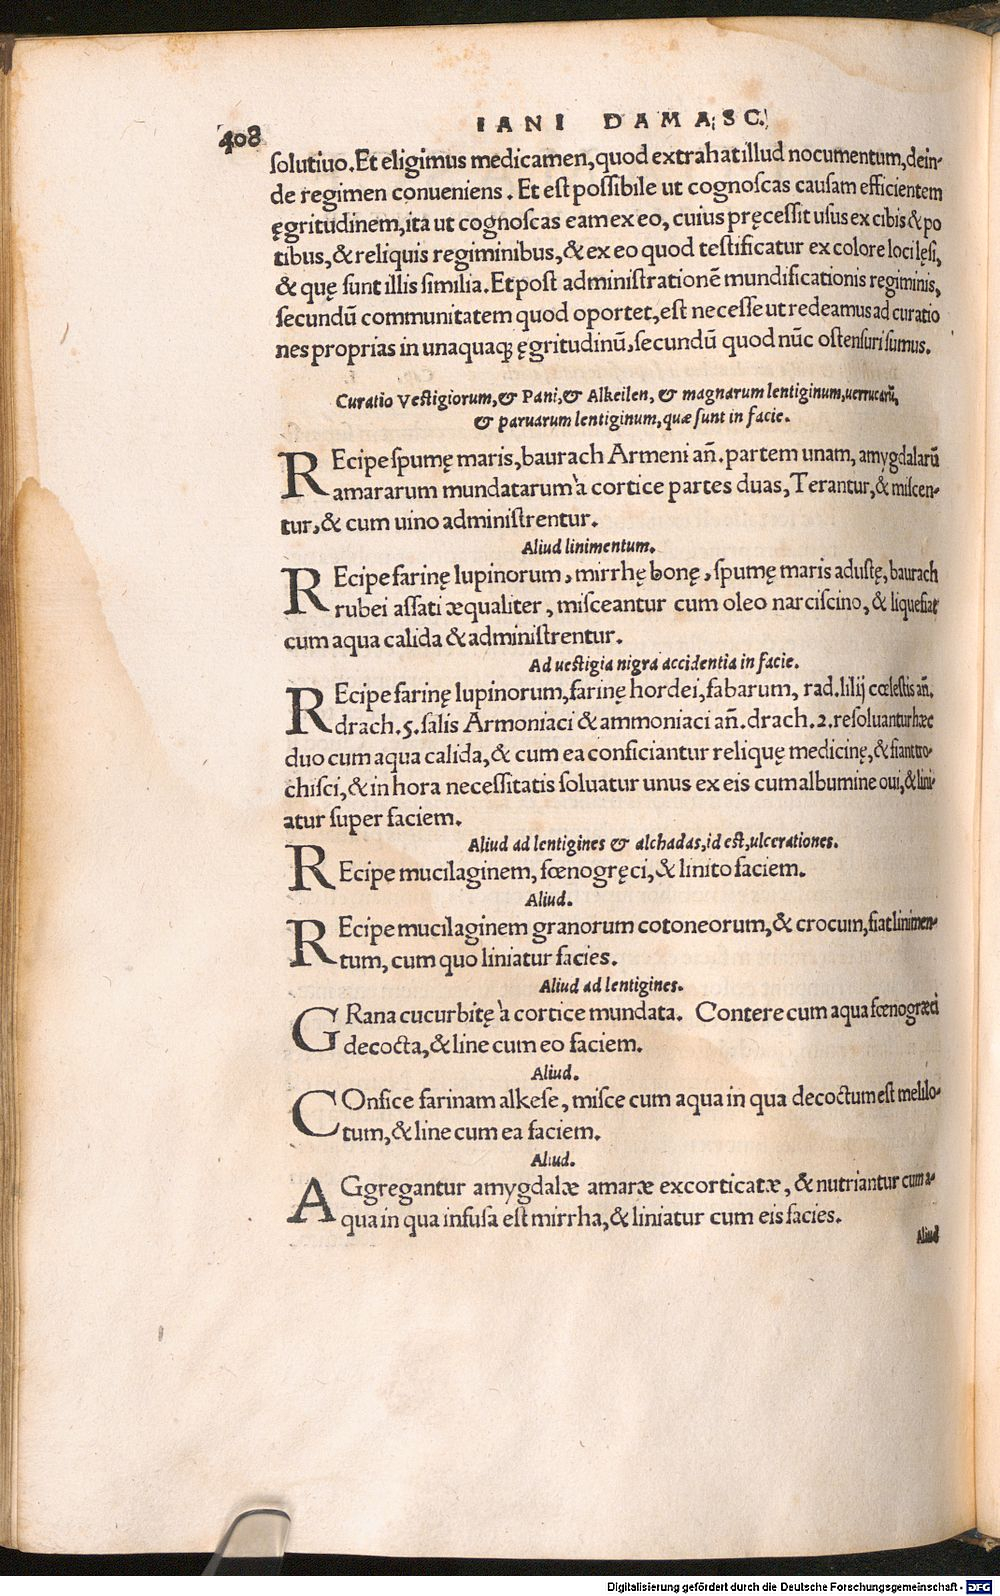 408
IANI DAMASC.
ſolutiuo. Et eligimus medicamen, quod extrahat illud nocumentum, dein-
de regimen conueniens. Et eſt poſſibile ut cognoſcas cauſam efficientem
ęgritudinem, ita ut cognoſcas eam ex eo, cuius pręceſſit uſus ex cibis & po
tibus, & reliquis regiminibus, & ex eo quod teſtificatur ex colore loci lęſi,
& quę ſunt illis ſimilia. Et poſt adminiſtrationē mundificationis regiminis,
ſecundū communitatem quod oportet, eſt neceſſe ut redeamus ad curatio
nes proprias in unaquaq; ęgritudinū, ſecundū quod nūc oſtenſuri ſumus.
Curatio Veſtigiorum, & Pani, & Alkeilen, & magnarum lentiginum, uerrucarū,
& paruarum lentiginum, quæ ſunt in facie.
REcipe ſpumę maris, baurach Armeni añ. partem unam, amygdalarū
amararum mundatarum à cortice partes duas, Terantur, & miſcen-
tur, & cum uino adminiſtrentur.
Aliud linimentum.
REcipe farinę lupinorum, mirrhę bonę, ſpumę maris aduſtę, baurach
rubei aſſati æqualiter, miſceantur cum oleo narciſcino, & liquefiat
cum aqua calida & adminiſtrentur.
Ad ueſtigia nigra accidentia in facie.
REcipe farinę lupinorum, farinę hordei, fabarum, rad. lilij cœleſtis añ.
drach. 5. ſalis Armoniaci & ammoniaci añ. drach. 2. reſoluantur hæc
duo cum aqua calida, & cum ea conficiantur reliquę medicinę, & fiant tro-
chiſci, & in hora neceſſitatis ſoluatur unus ex eis cum albumine oui, & lini-
atur ſuper faciem.
Aliud ad lentigines & alchadas, id eſt, ulcerationes.
REcipe mucilaginem, fœnogręci, & linito faciem.
Aliud.
REcipe mucilaginem granorum cotoneorum, & crocum, fiat linimen-
tum, cum quo liniatur facies.
Aliud ad lentigines.
GRana cucurbitę à cortice mundata. Contere cum aqua fœnogræci
decocta, & line cum eo faciem.
Aliud.
COnfice farinam alkeſe, miſce cum aqua in qua decoctum eſt melilo-
tum, & line cum ea faciem.
Aliud.
AGgregantur amygdalæ amaræ excorticatæ, & nutriantur cum a-
qua in qua infuſa eſt mirrha, & liniatur cum eis facies.
Aliud
Digitalisierung gefördert durch die Deutsche Forschungsgemeinschaft - DFG